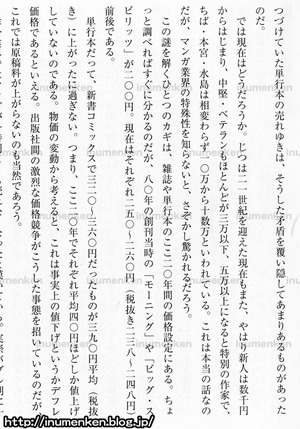 つづけていた単行本の売れゆきは、そうした矛盾を覆い隠してあまりあるものがあった
のだ。
では現在はどうだろうか。じつは二一世紀を迎えた現在もまた、やはり新人は数千円
からはじまり、中堅・ベテランもほとんどが三万以下、五万以上になると特別の作家で、
ちば・本宮・水島は相変わらず一〇万から十数万といわれている。これは本当の話なの
だが、マンガ業界の特殊性を知らないと、さぞかし驚かれるだろう。
この謎を解くひとつのカギは、雑誌や単行本のここ二〇年間の価格設定にある。ちょ
っと調べればすぐに分かるのだが、八〇年の創刊当時の「モーニング」や「ビッグ・ス
ピリッツ」が二〇〇円。現在はそれぞれ二五〇～二六〇円（税抜き二三八～二四八円）
前後である。
単行本だって、新書コミックスで三二〇～三六〇円だったものが三九〇円平均（税抜
き）に上がったに過ぎない。つまり、ここ二〇年でそれぞれ平均四〇円ほどしか値上げ
していないのである。物価の変動から考えると、これは事実上の値下げというかデフレ
価格であるといえる。出版社間の激烈な価格競争がこうした事態を招いているのだが、
これでは原稿料が上がらないのも当然であろう。
http://inumenken.blog.jp/